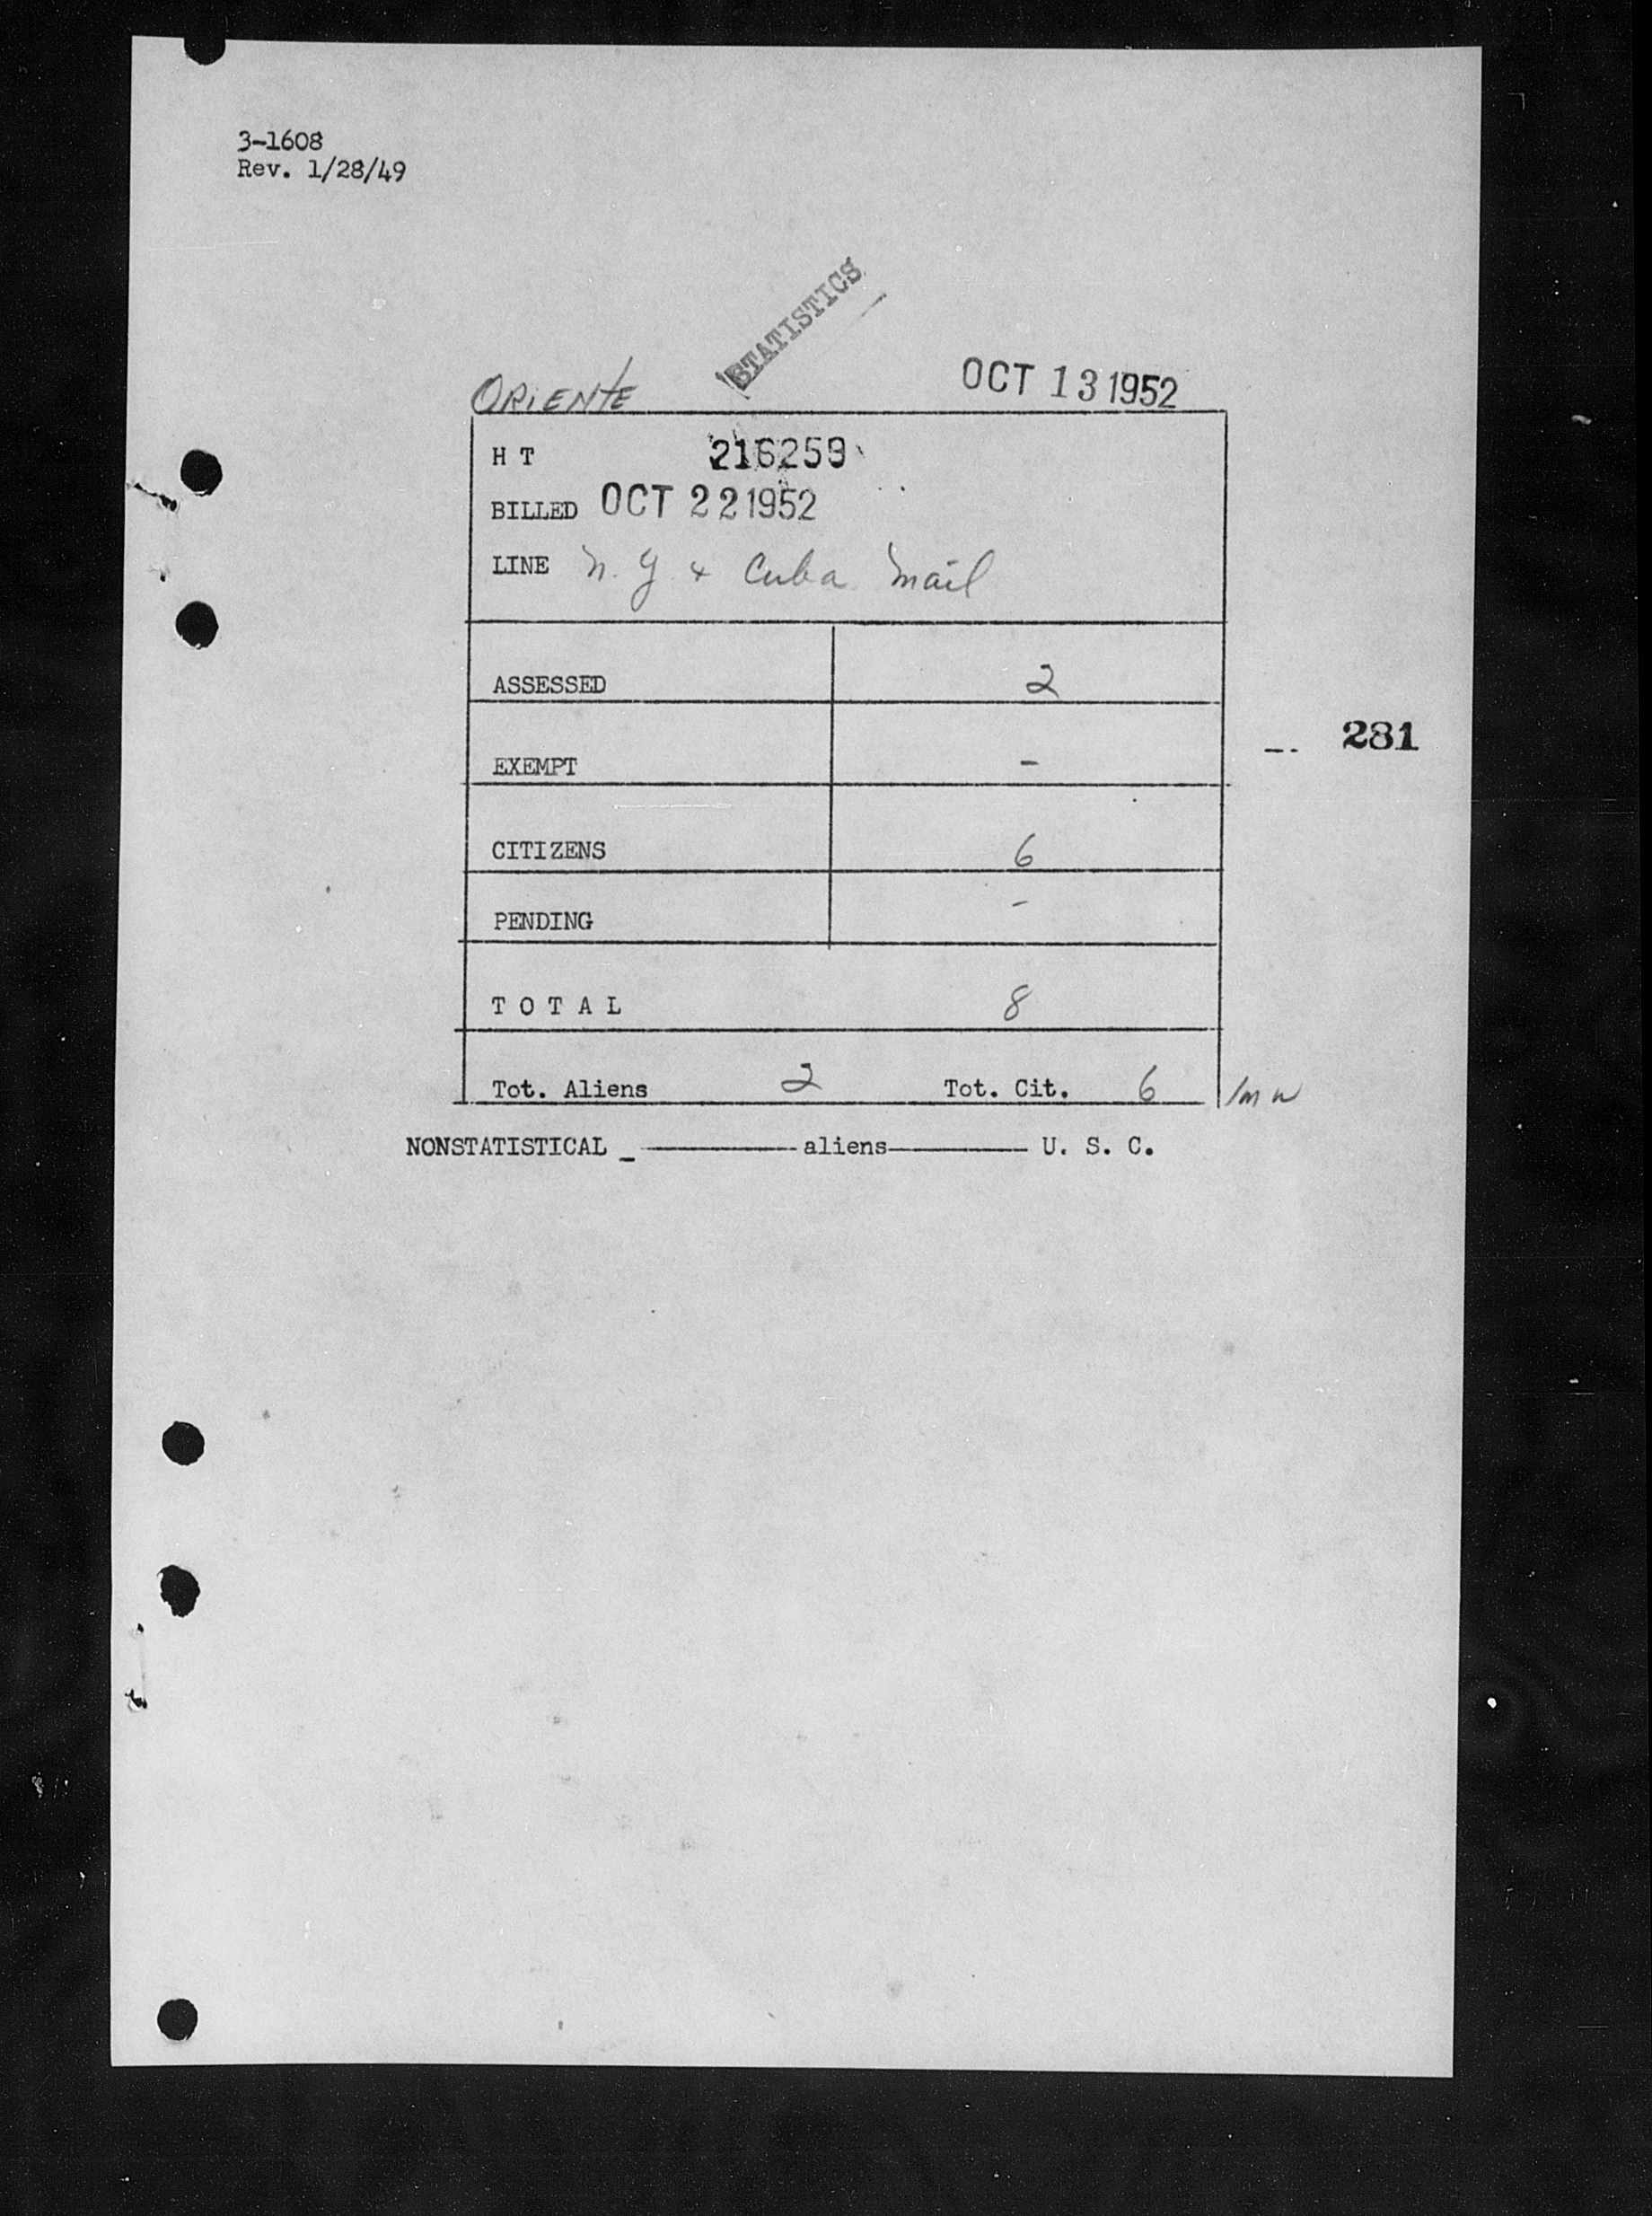 3-1608
Rev. 1/28/49
STATISTICS
ORIENTE OCT 13 1952
H T 216259
BILLED OCT 22 1952
LINE N. Y & Cuba Mail
ASSESSED 2
281
EXEMPT -
CITIZENS 6
PENDING -
T O T A L 8
Tot. Aliens 2 Tot. Cit. 6
NONSTATISTICAL _ aliens U. S. C.